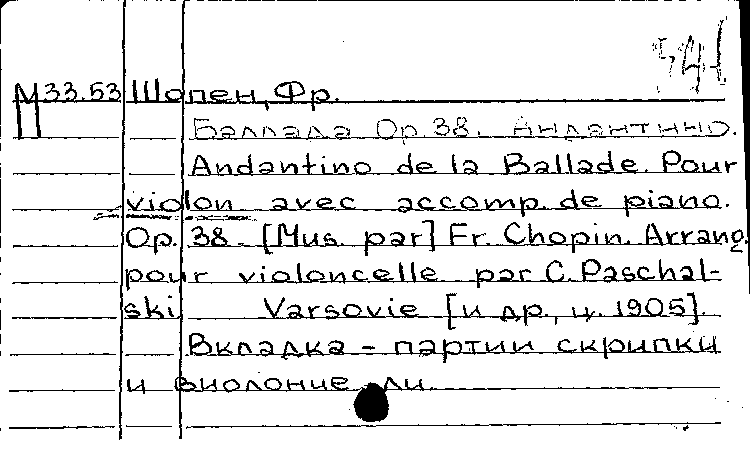 541
М33.53 Шопен, Фр.
Баллада Op. 38. Андантино.
Andantino de la Ballade. Pour
violon avec accomp. de piano.
Op. 38. [Mus. par] Fr. Chopin. Arrang.
pour violoncelle par C. Paschal-
ski Varsovie [и др., ц. 1905].
Вкладка - партии скрипки
и виолонче ли.